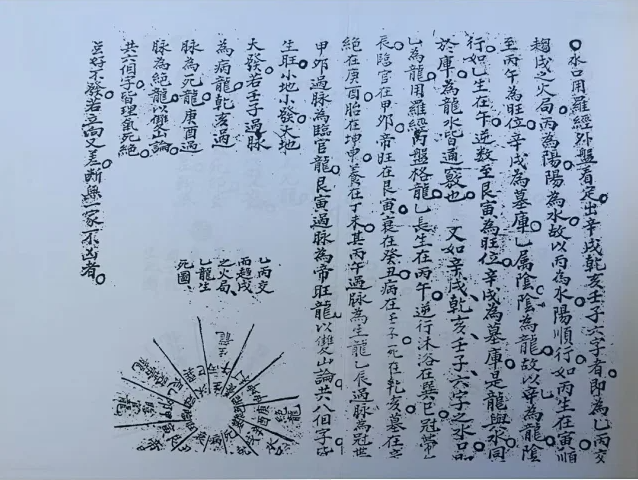 水口用羅經外盤看定出辛戌乾亥壬子六字者即為乙丙交
趨戌之火局丙為陽陽為水故以丙為水陽順行如丙生在寅順
至丙午為旺位辛戌為墓庫乙屬陰陰為龍故以乙為龍陰逆
行如乙生在午逆数至艮寅為旺位辛戌為墓庫是龍與水同歸
於庫為龍水皆通竅也又如辛戌乾亥壬子六字之水口
乙為龍用羅經內盤格龍乙長生在丙午逆行沐浴在巽巳冠帶乙
辰臨官在甲卯帝旺在艮寅衰在癸丑病在壬子死在乾亥墓在辛
絕在庚酉胎在坤申養在丁未其丙午過脉為生龍乙辰過脉為冠帶
甲卯過脉為臨官龍艮寅過脉為帝旺龍以雙山論共八個字皆
生旺小地小發大地
大發若壬子過脉
為病龍乾亥過
脉為死龍庚酉過
脉為絕龍以雙山論
共六個字皆理氣死絕
立好不發若立向又差斷無一家不凶者
乙丙交
而趨戌
之火局
乙龍生
死圖